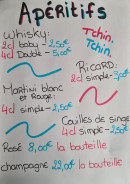 Apéritifs
Whisky:
2cl baby - 2,50€
4cl Double - 5,00€
Tchin,
Tchin,
Ricard:
2cl simple - 3,00€
Martini blanc
et Rouge:
4cl - 2,50€
Couilles de singe
4cl simple - 2,50€
Rosé 8,00€ la bouteille
champagne 22,00€ la bouteille